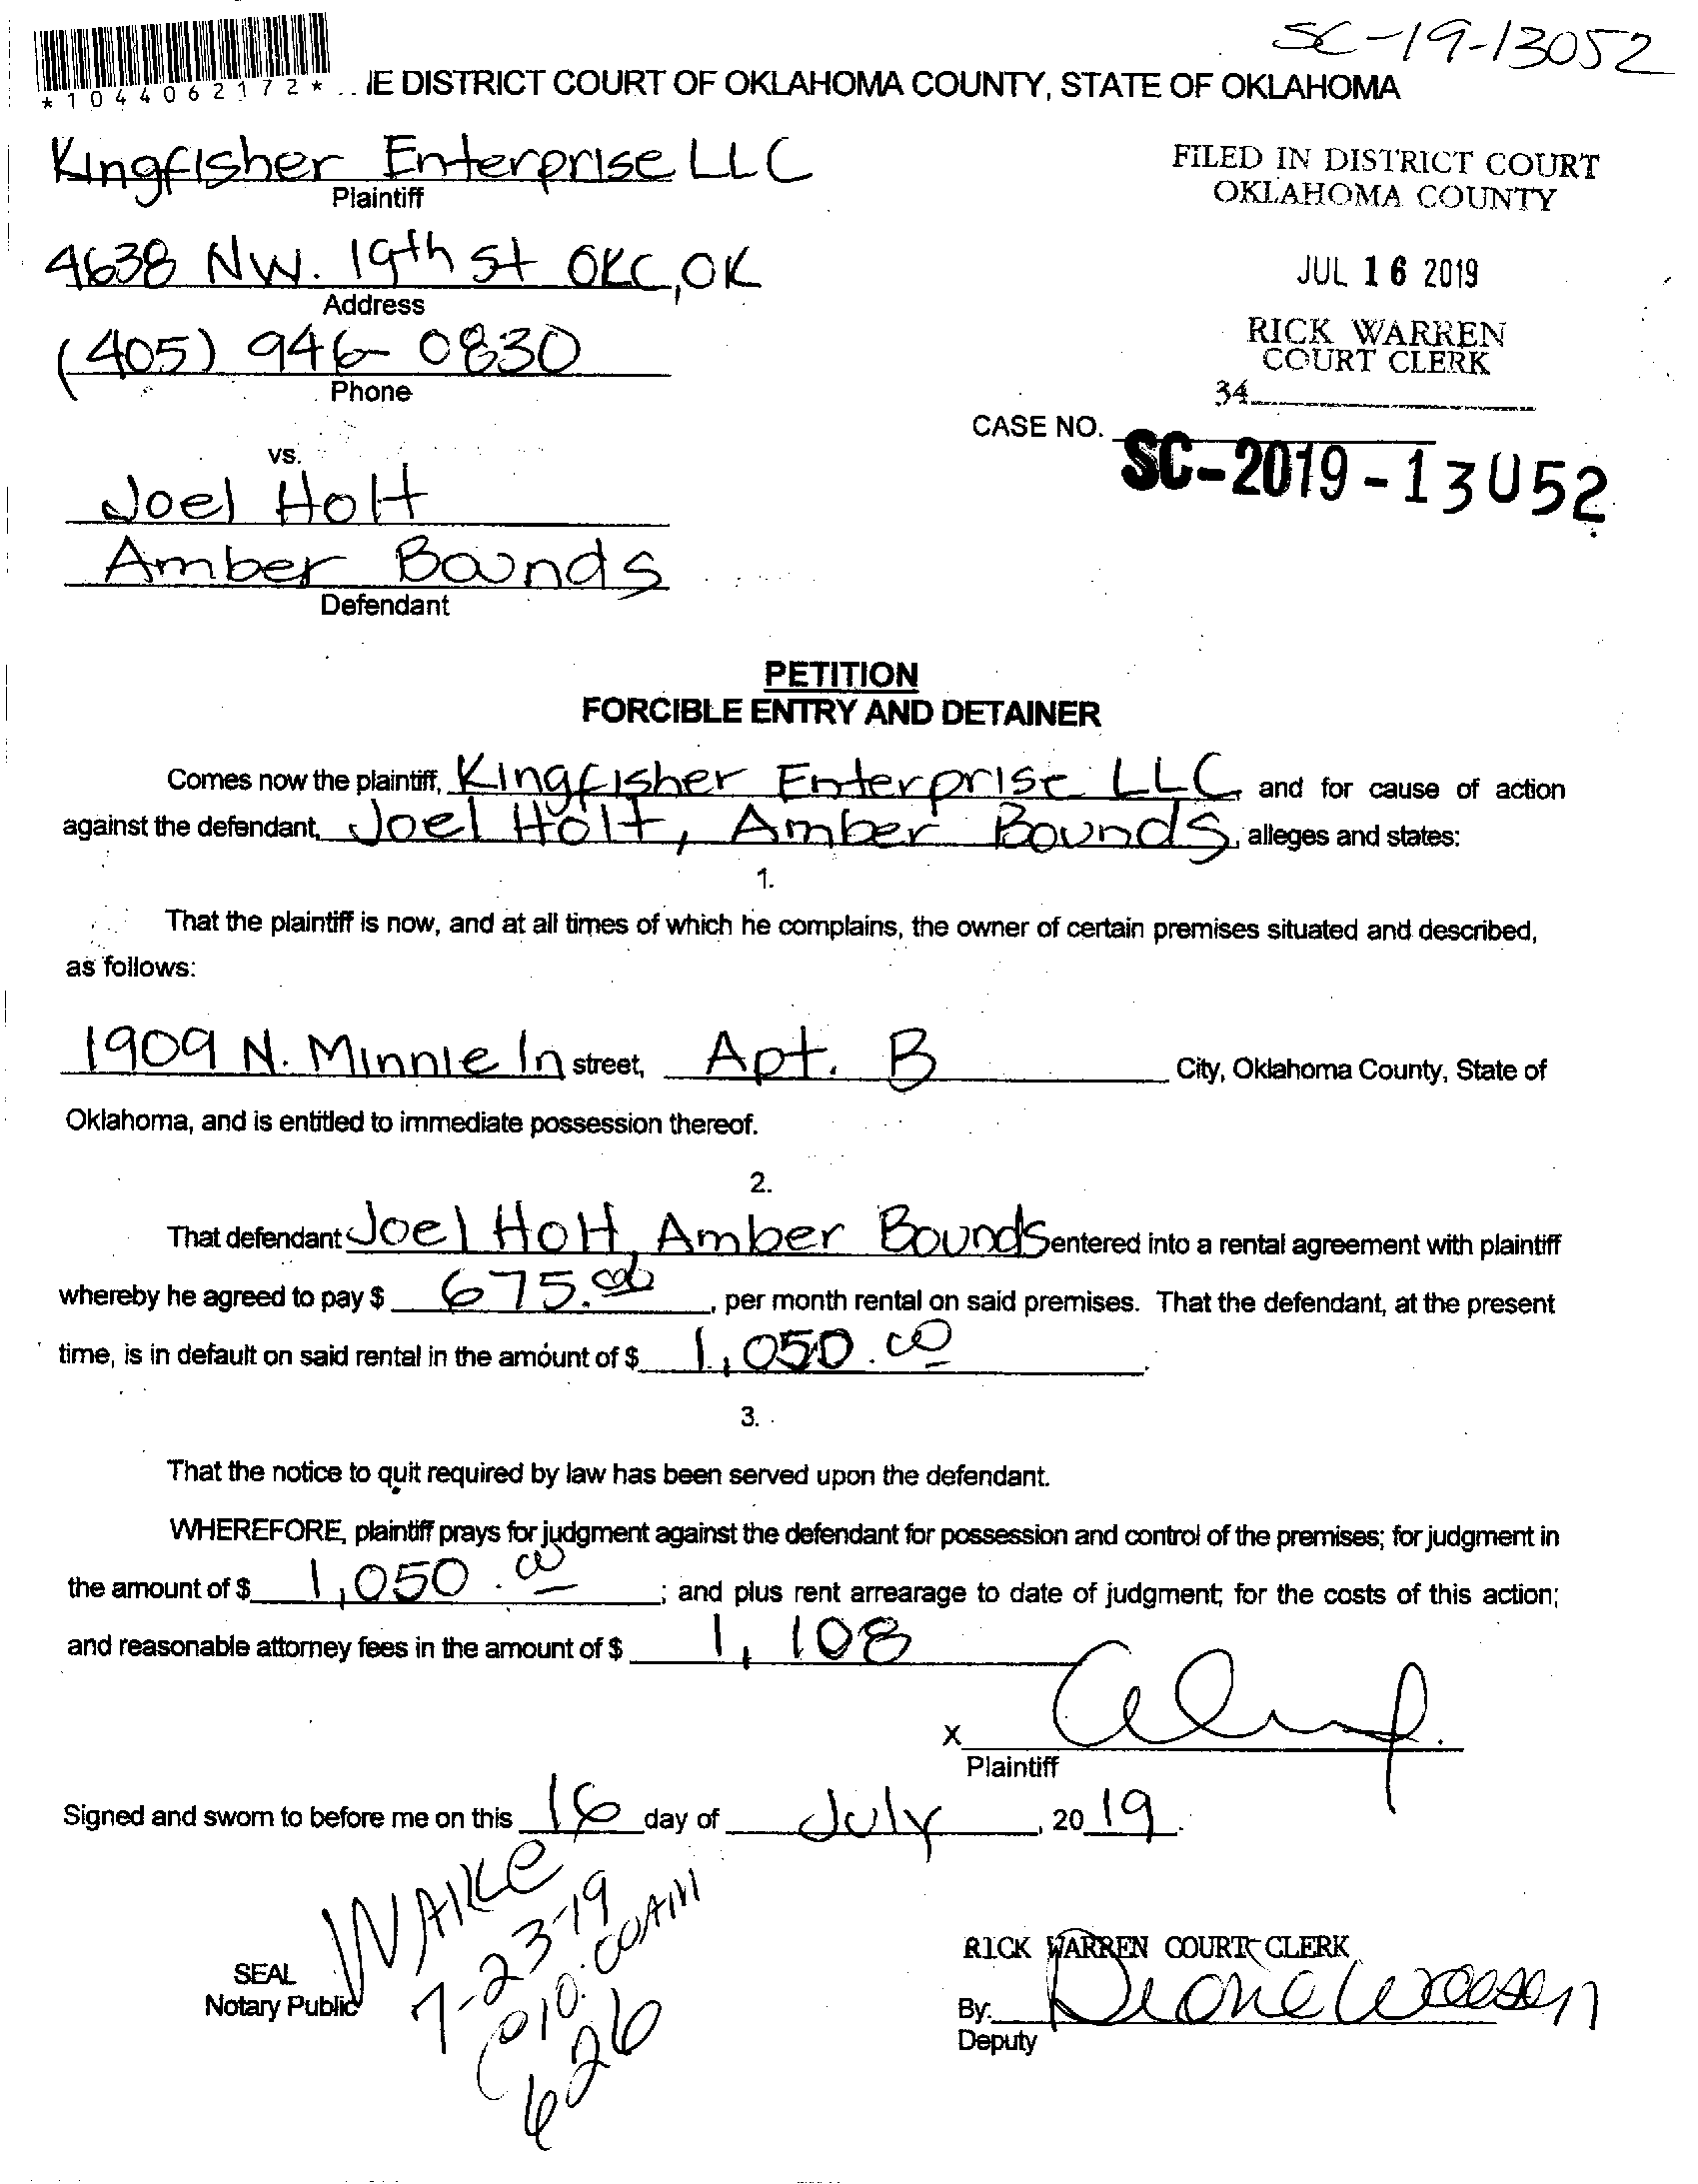 SC-19-13052
*1044062172* IE DISTRICT COURT OF OKLAHOMA COUNTY, STATE OF OKLAHOMA
Kingfisher Enterprise LLC
Plaintiff
FILED IN DISTRICT COURT
OKLAHOMA COUNTY
4638 NW. 19th St OKC, OK
Address
JUL 16 2019
(405) 946-0830
Phone
RICK WARREN
COURT CLERK
34
CASE NO.
SC-2019-13052
vs.
Joel Holt
Amber Bounds
Defendant
PETITION
FORCIBLE ENTRY AND DETAINER
Comes now the plaintiff, Kingfisher Enterprise LLC, and for cause of action
against the defendant, Joel Holt, Amber Bounds, alleges and states:
1.
That the plaintiff is now, and at all times of which he complains, the owner of certain premises situated and described,
as follows:
1909 N. Minnie ln street, Apt. B City, Oklahoma County, State of
Oklahoma, and is entitled to immediate possession thereof.
2.
That defendant Joel Holt, Amber Bounds entered into a rental agreement with plaintiff
whereby he agreed to pay $ 675.00, per month rental on said premises. That the defendant, at the present
time, is in default on said rental in the amount of $ 1,050.00.
3.
That the notice to quit required by law has been served upon the defendant.
WHEREFORE, plaintiff prays for judgment against the defendant for possession and control of the premises; for judgment in
the amount of $ 1,050.00; and plus rent arrearage to date of judgment; for the costs of this action;
and reasonable attorney fees in the amount of $ 1,108
X
Plaintiff
Signed and sworn to before me on this 16 day of July, 2019.
WAKE
7-23-19
@10:00AM
626
SEAL
Notary Public
RICK WARREN COURT CLERK
By:
Deputy